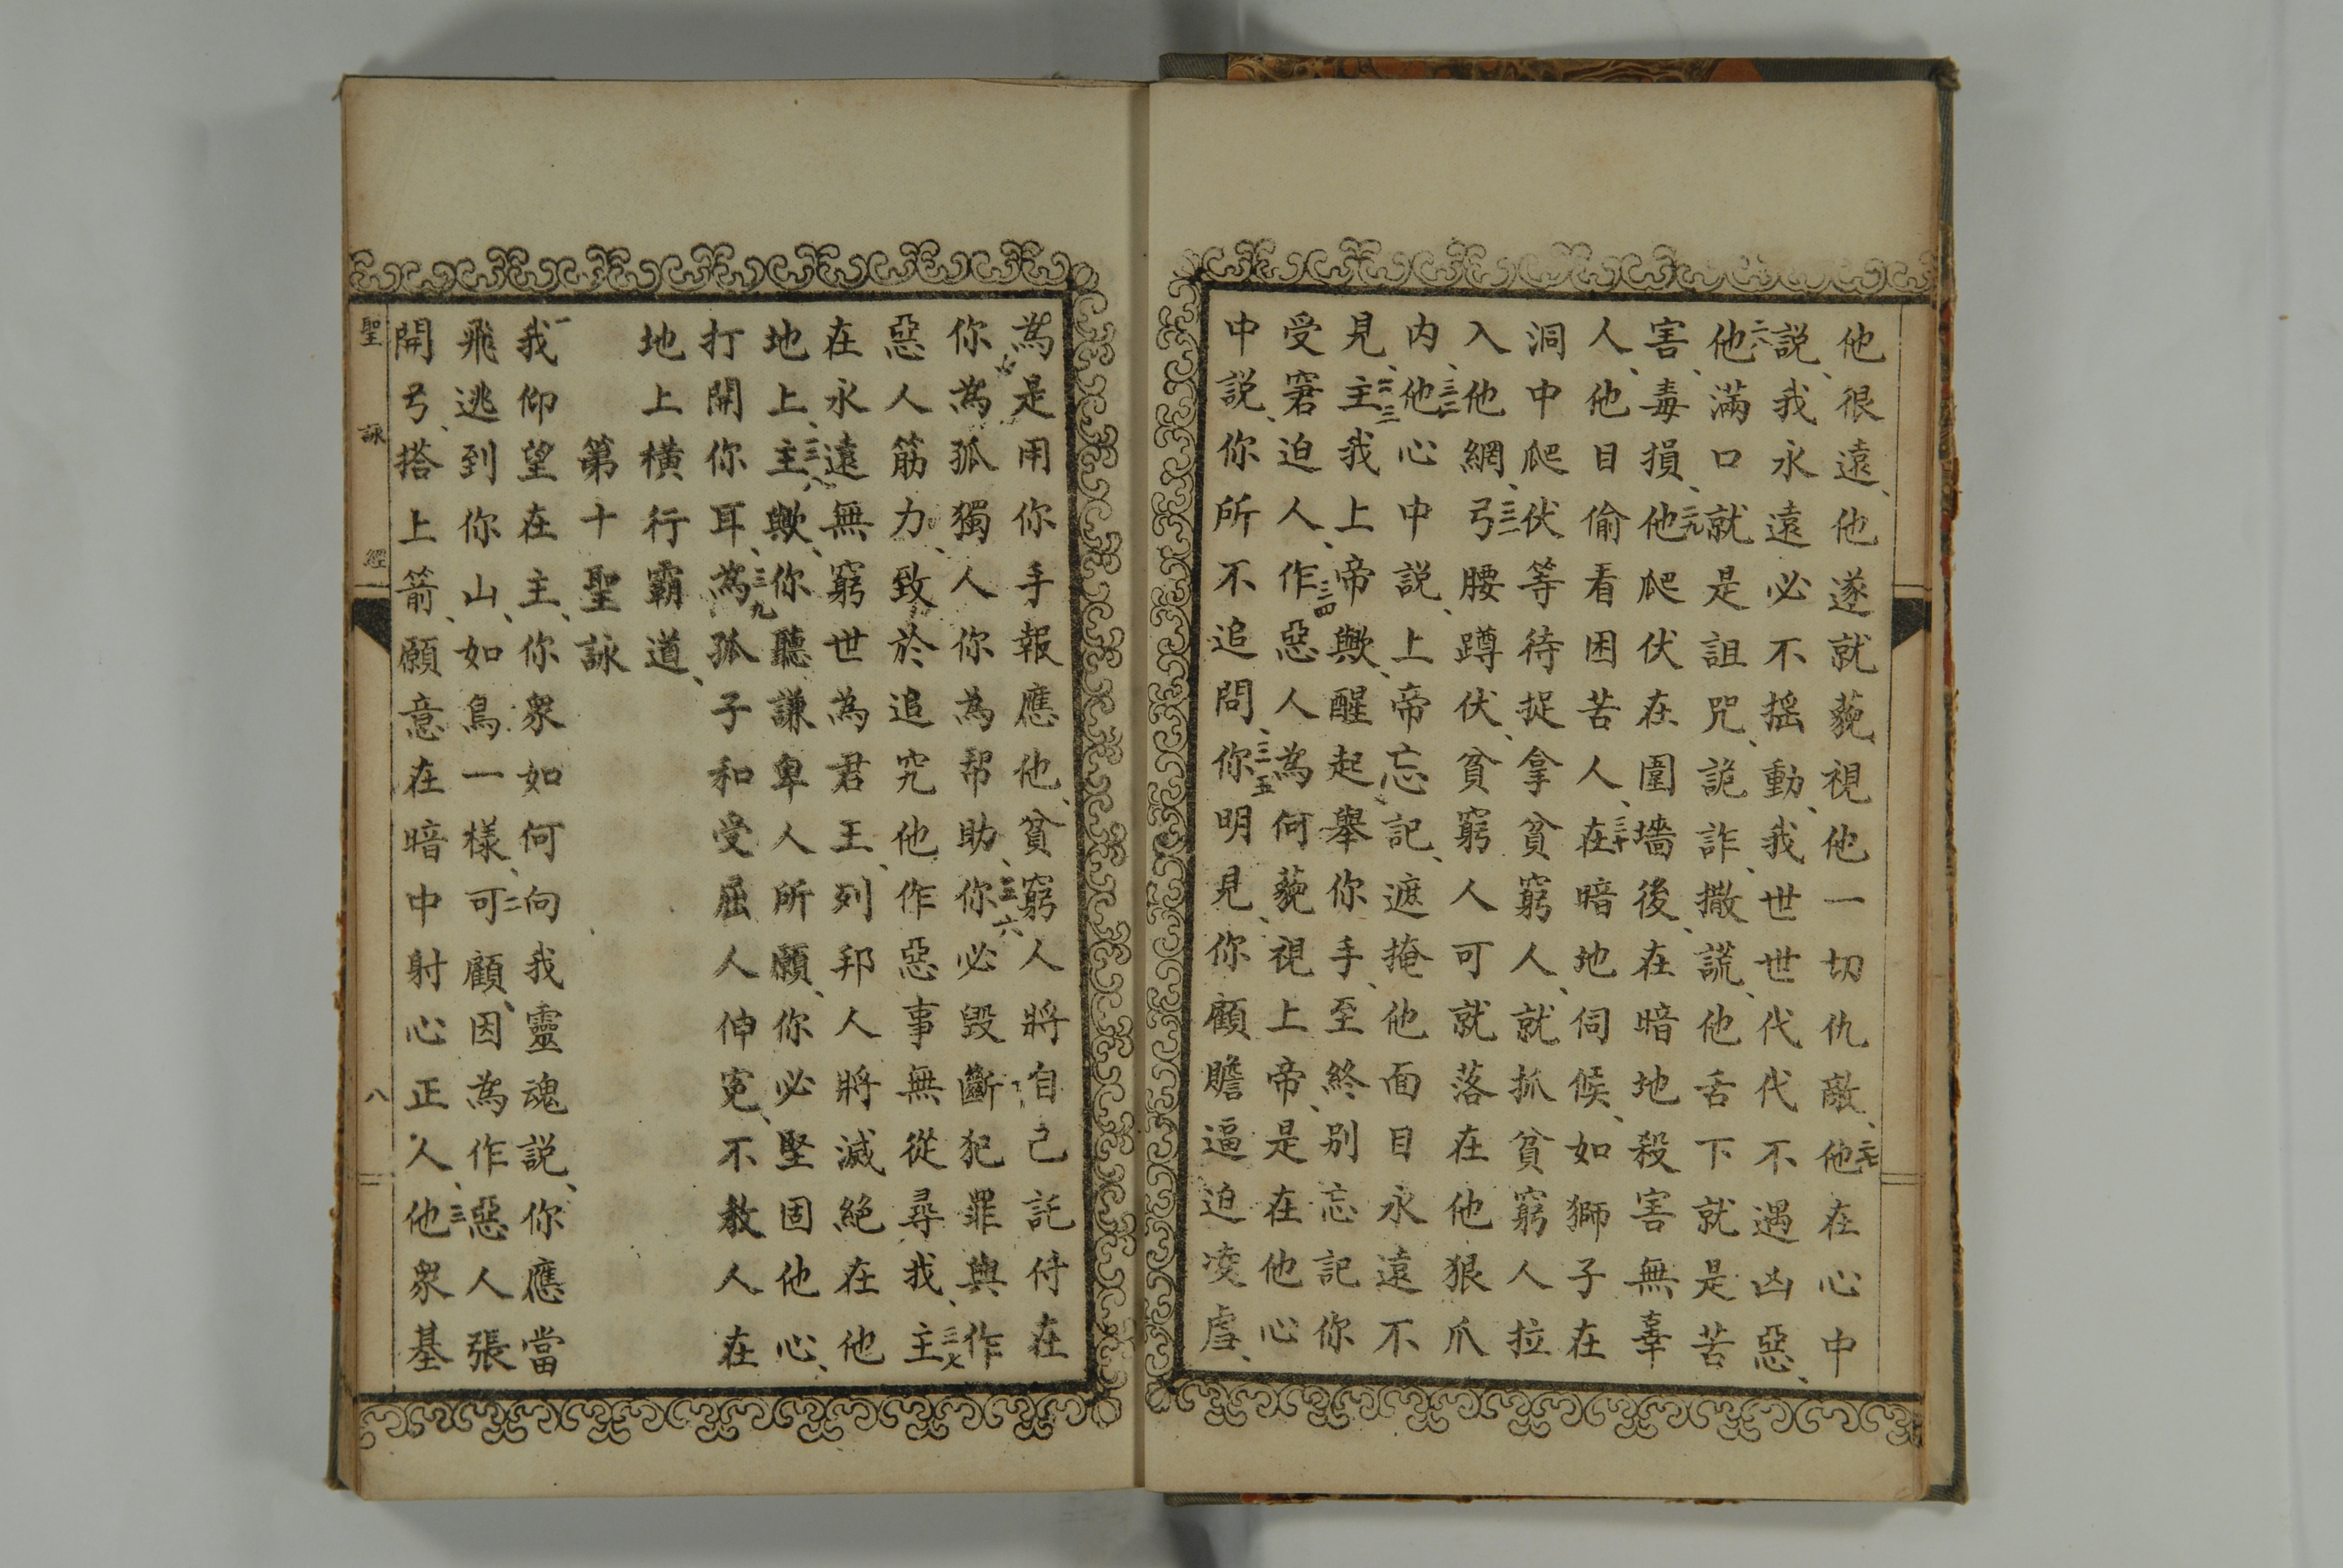 他很遠、他遂就藐視他一切仇敵、二七他在心中
説、我永遠必不搖動、我世世代代不遇凶惡、
二八他滿口就是詛咒、詭詐、撒謊、他舌下就是苦
害、毒損、二九他爬伏在圍墻後、在暗地殺害無辜
人、他目偷看困苦人、三十在暗地伺候、如獅子在
洞中爬伏等待捉拿貧窮人、就抓貧窮人拉
入他網、三一弓腰蹲伏、貧窮人可就落在他狠爪
内、三二他心中説、上帝忘記、遮掩他面目永遠不
見、三三主我上帝歟、醒起舉你手、至終別忘記你
受窘迫人、三四作惡人為何藐視上帝、是在他心
中説、你所不追問、三五你明見、你顧瞻逼迫凌虐、
為是用你手報應他、貧窮人將自己託付在
你、為孤獨人你為帮助、三六你必毀斷犯罪與作
惡人筋力、致於追究他作惡事無從尋我、三七主
在永遠無窮世為君王、列邦人將滅絕在他
地上、三八主歟、你聽謙卑人所願、你必堅固他心、
打開你耳、三九為孤子和受屈人伸冤、不教人在
地上橫行霸道、
第十聖詠
一我仰望在主、你衆如何向我靈魂説、你應當
飛逃到你山、如鳥一樣、二可顧、因為作惡人張
開弓、搭上箭、願意在暗中射心正人、三他衆基
聖詠經 八